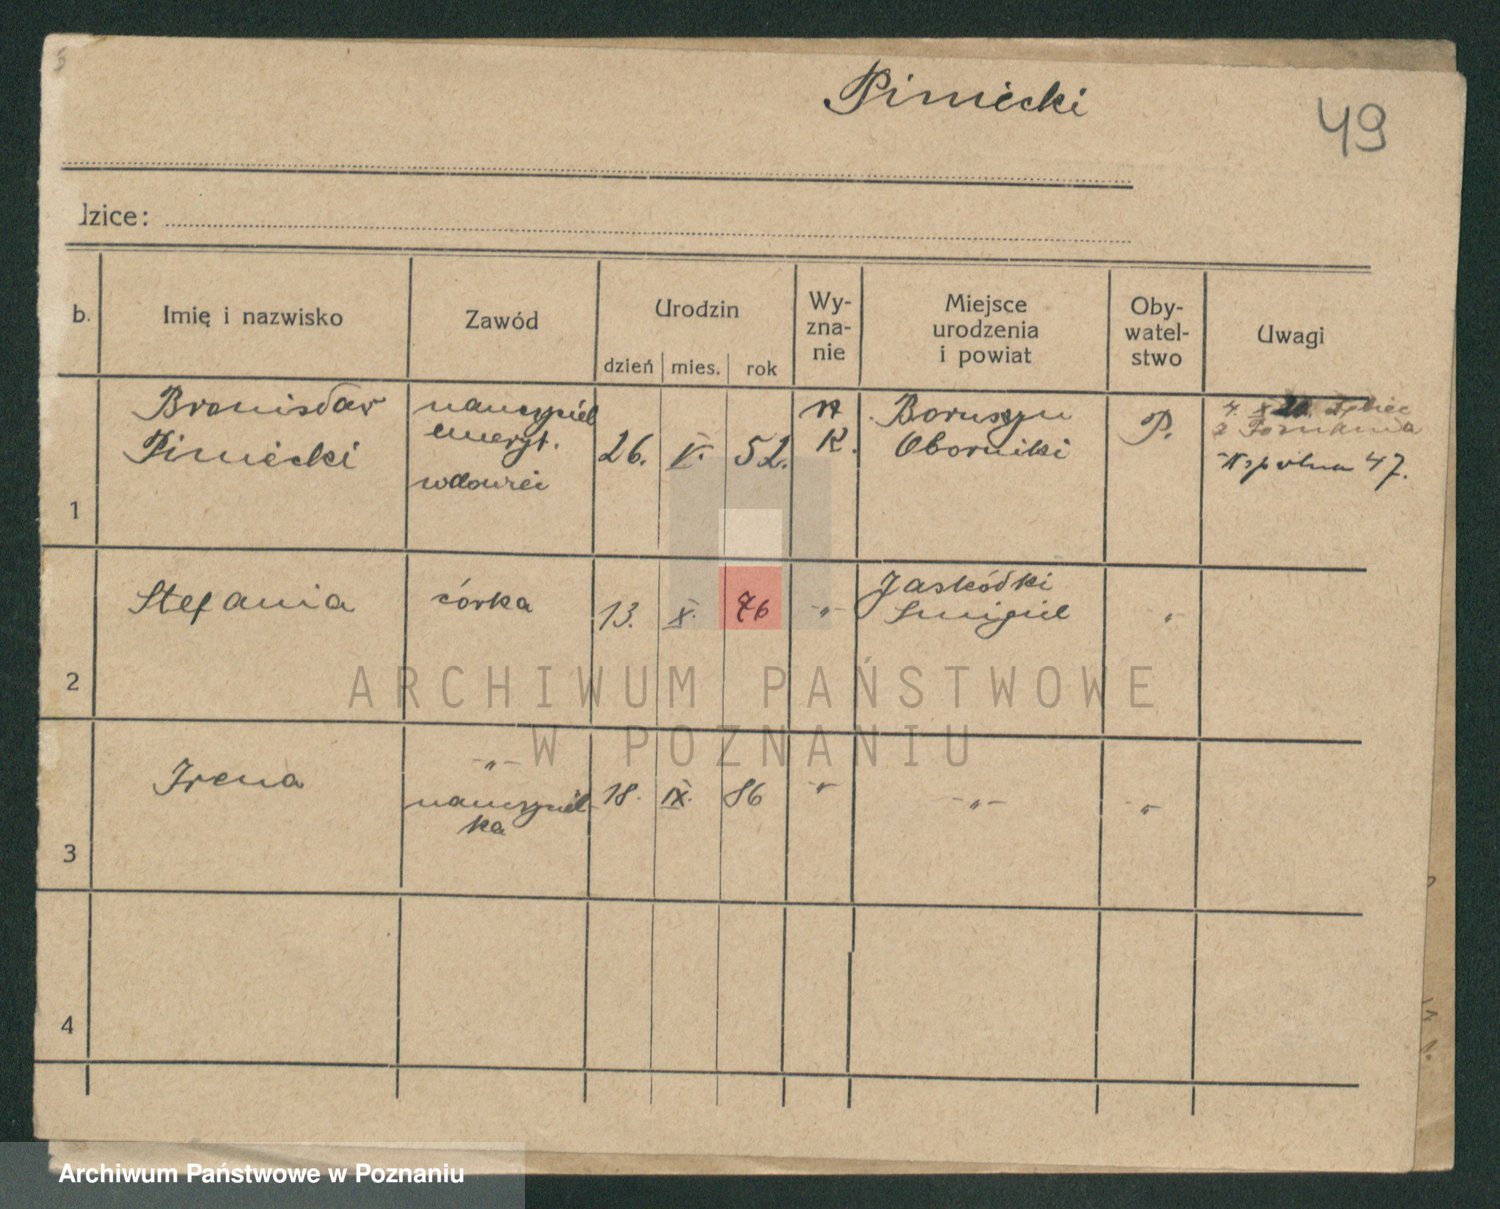 Piniecki
49
dzice:
b.
Imię i nazwisko
Zawód
Urodzin
dzień mies. rok
Wy-
zna-
nie
Miejsce
urodzenia
i powiat
Oby-
watel-
stwo
Uwagi
1
Bronisław
Piniecki
nauczyciel
emeryt.
wdowiec
26. V. 52.
K.
Boruszyn
Oborniki
P.
4. X 20.
Poznania
Wspólna 47.
2
Stefania
córka
13. X. 76
-"-
Jaskółki
Śmigiel
"
3
Irena
-"-
nauczyciel
ka
18. IX. 86
-"-
-"-
-"-
4
ARCHIWUM PAŃSTWOWE
W POZNANIU
Archiwum Państwowe w Poznaniu